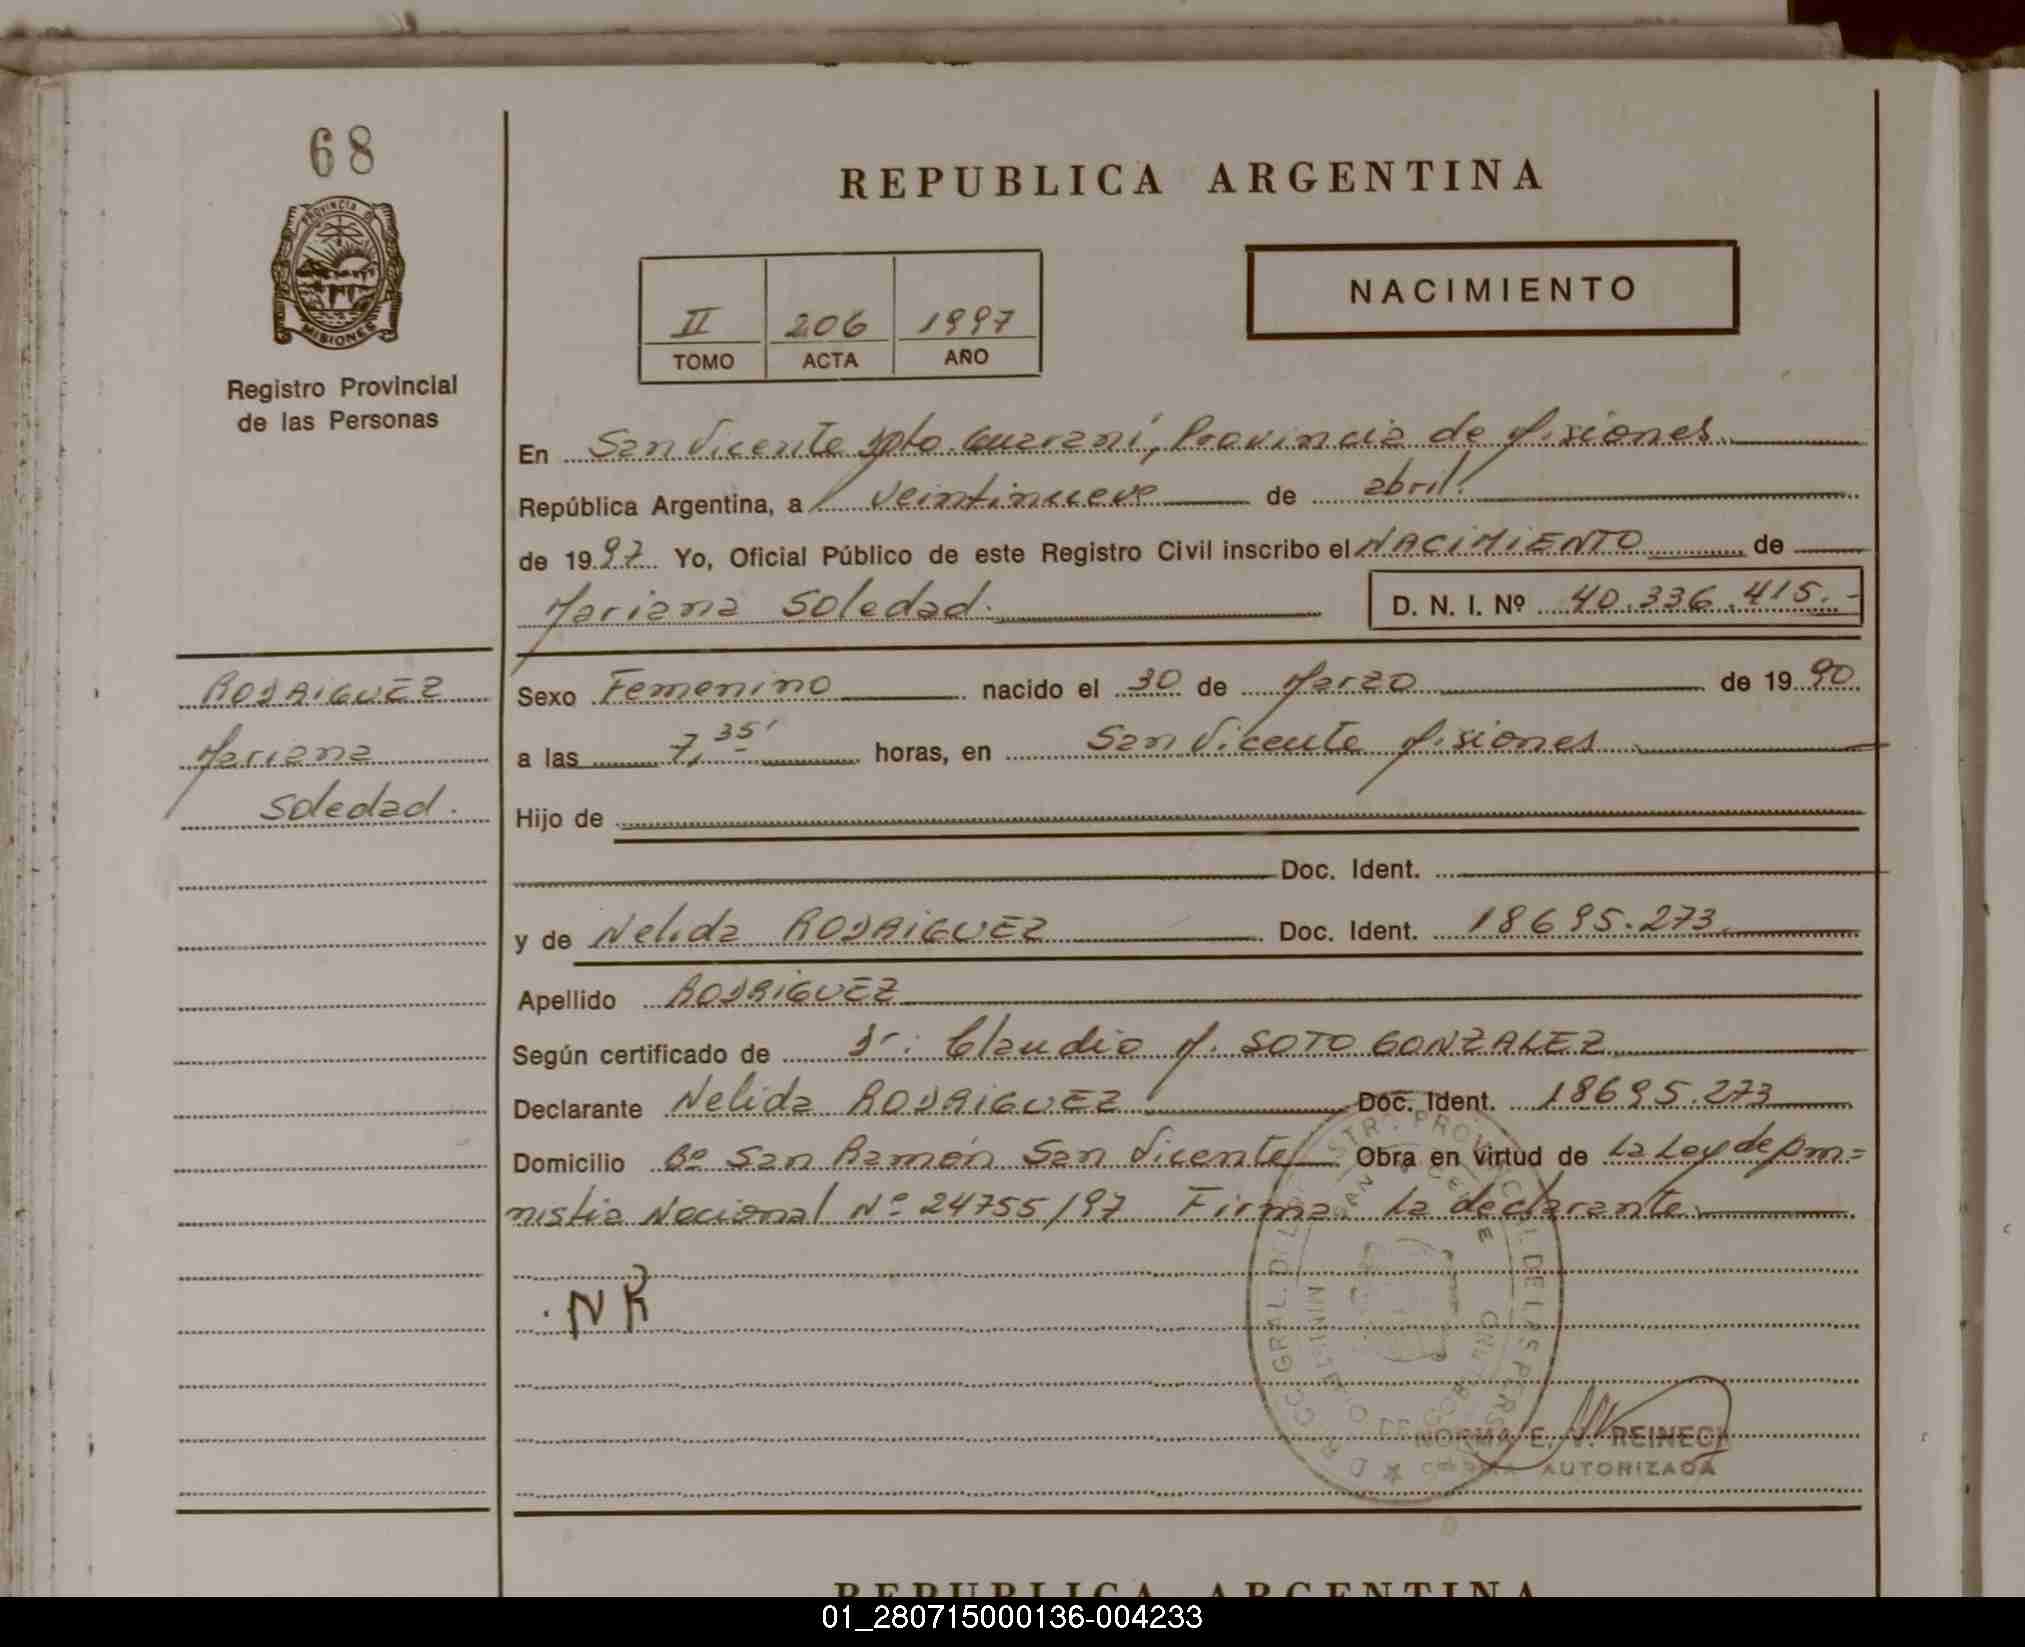 68
PROVINCIA DE
MISIONES
Registro Provincial
de las Personas
REPUBLICA ARGENTINA
II 206 1997
TOMO ACTA AÑO
NACIMIENTO
En San Vicente Dpto. Guaraní, Provincia de Misiones.
República Argentina, a veintinueve de abril.
de 1997 Yo, Oficial Público de este Registro Civil inscribo el NACIMIENTO de
Mariana Soledad. D. N. I. Nº 40.336.415.-
RODRIGUEZ
Mariana
Soledad.
Sexo Femenino nacido el 30 de Marzo de 1990
a las 7,35' horas, en San Vicente Misiones
Hijo de
Doc. Ident.
y de Nelida RODRIGUEZ Doc. Ident. 18695.273.
Apellido RODRIGUEZ
Según certificado de Dr: Claudio M. SOTO GONZALEZ
Declarante Nelida RODRIGUEZ Doc. Ident. 18695.273
Domicilio Bº San Ramón San Vicente Obra en virtud de la Ley de Am=
nistia Nacional Nº 24755/97 Firma: la declarante.
NR
NORMA E. V. REINECK
FIRMA AUTORIZADA
REPUBLICA ARGENTINA
01_280715000136-004233